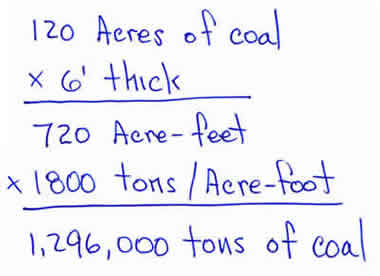 120 Acres of coal
x 6' thick
720 Acre-feet
x 1800 tons/Acre-foot
1,296,000 tons of coal